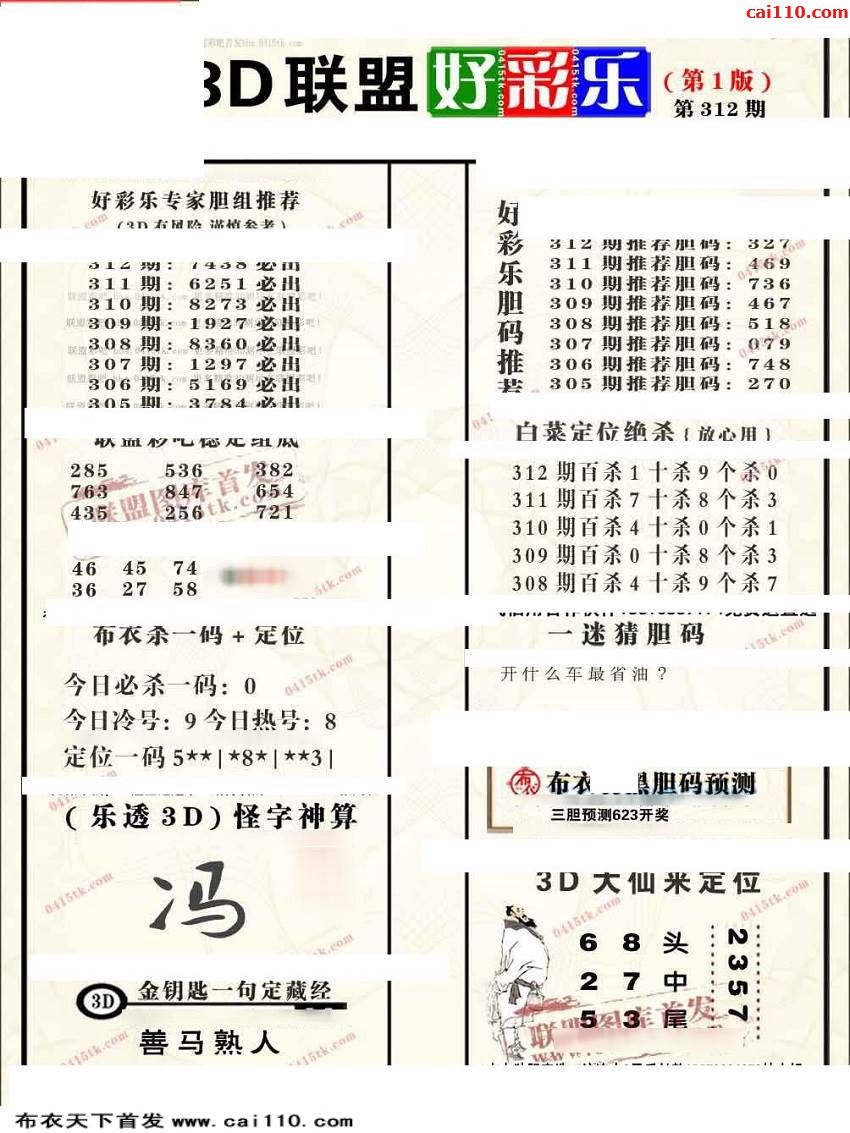 cai110.com
3D联盟 好彩乐 (第1版)
第312期
好彩乐专家胆组推荐
(3D有风险 谨慎参考)
312期: 7438必出
311期: 6251必出
310期: 8273必出
309期: 1927必出
308期: 8360必出
307期: 1297必出
306期: 5169必出
305期: 3784必出
联盟彩吧稳定组底
285 536 382
763 847 654
435 256 721
46 45 74
36 27 58
布衣杀一码+定位
今日必杀一码: 0
今日冷号: 9 今日热号: 8
定位一码 5**|*8*|**3|
(乐透3D)怪字神算
冯
3D 金钥匙一句定藏经
善马熟人
好彩乐胆码推荐
312期推荐胆码: 327
311期推荐胆码: 469
310期推荐胆码: 736
309期推荐胆码: 467
308期推荐胆码: 518
307期推荐胆码: 079
306期推荐胆码: 748
305期推荐胆码: 270
白菜定位绝杀{放心用}
312期百杀1十杀9个杀0
311期百杀7十杀8个杀3
310期百杀4十杀0个杀1
309期百杀0十杀8个杀3
308期百杀4十杀9个杀7
一迷猜胆码
开什么车最省油?
布衣 黑胆码预测
三胆预测623开奖
3D大仙来定位
6 8 头
2 7 中
5 3 尾
2357
联盟图库首发
0415tk.com
布衣天下首发 www.cai110.com